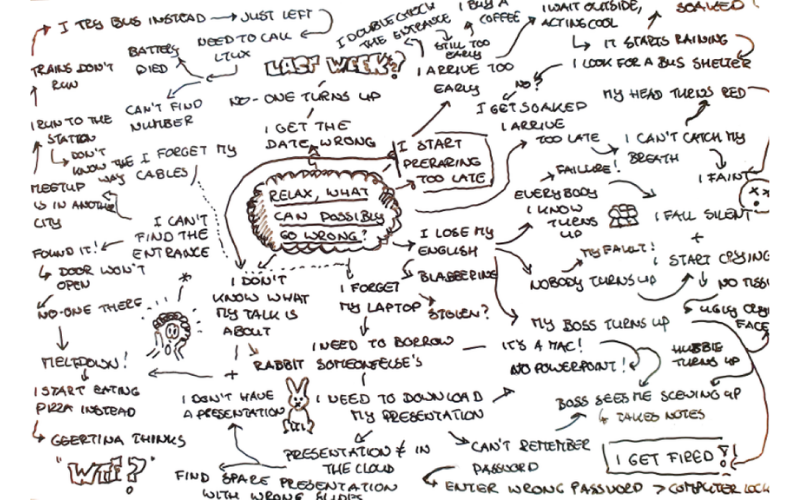 I TRY BUS INSTEAD
JUST LEFT
NEED TO CALL
LTUX
BATTERY
DIED
CAN'T FIND
NUMBER
TRAINS DON'T
RUN
I RUN TO THE
STATION
DON'T
KNOW THE
WAY
MEETUP
IS IN ANOTHER
CITY
I FORGET MY
CABLES
I CAN'T
FIND THE
ENTRANCE
FOUND IT!
DOOR WON'T
OPEN
NO-ONE THERE
MELTDOWN!
I START EATING
PIZZA INSTEAD
GEERTINA THINKS
"WTF?"
I DOUBLE CHECK
THE ENTRANCE
LAST WEEK?
NO-ONE TURNS UP
I GET THE
DATE WRONG
RELAX, WHAT
CAN POSSIBLY
GO WRONG?
I START
PRERARING
TOO LATE
I BUY A
COFFEE
STILL TOO
EARLY
I ARRIVE TOO
EARLY
I WAIT OUTSIDE,
ACTING COOL
SOAKED
IT STARTS RAINING
I LOOK FOR A BUS SHELTER
NO?
I GET SOAKED
MY HEAD TURNS RED
I ARRIVE
TOO LATE
I CAN'T CATCH MY
BREATH
I FAINT
FAILURE!
EVERYBODY
I KNOW
TURNS
UP
I FALL SILENT
+
I START CRYING
NO TISS
UGLY CRY
FACE
I LOSE MY
ENGLISH
BLABBERING
MY FAULT!
NOBODY TURNS UP
MY BOSS TURNS UP
HUBBIE
TURNS UP
BOSS SEES ME SCEWING UP
TAKES NOTES
I GET FIRED!
I DON'T
KNOW WHAT
MY TALK IS
ABOUT
RABBIT
+
I DON'T HAVE
A PRESENTATION
I FORGET
MY LAPTOP
STOLEN?
I NEED TO BORROW
SOMEONE ELSE'S
IT'S A MAC!
NO POWERPOINT!
I NEED TO DOWNLOAD
MY PRESENTATION
PRESENTATION ≠ IN
THE CLOUD
FIND SPARE PRESENTATION
WITH WRONG SLIDES
CAN'T REMEMBER
PASSWORD
ENTER WRONG PASSWORD > COMPUTER LOCK